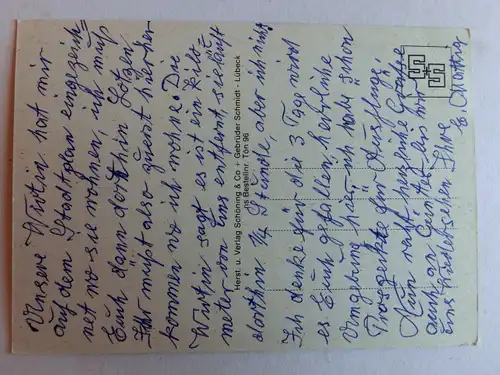 Unsere Wirtin hat mir
auf dem Stadtplan eingezeich-
net wo sie wohnen, ich muß
Euch dann dorthin lotzen
Ihr müßt also zuerst hierher
kommen wo ich wohne. Die
Wirtin sagt es ist ein kilo-
meter von uns entfernt, sie läuft
dorthin 1/4 Stunde, aber ich nicht
Ich denke für die 3 Tage wird
es Euch gefallen, herrliche
Umgebung hier, ich habe schon
Prospekte für Ausflüge.
Nun recht herzliche Grüße
auch an bis wir
uns wiedersehen Ihre
Herst. u. Verlag Schöning & Co + Gebrüder Schmidt - Lübeck
Bestellnr. Tön 96